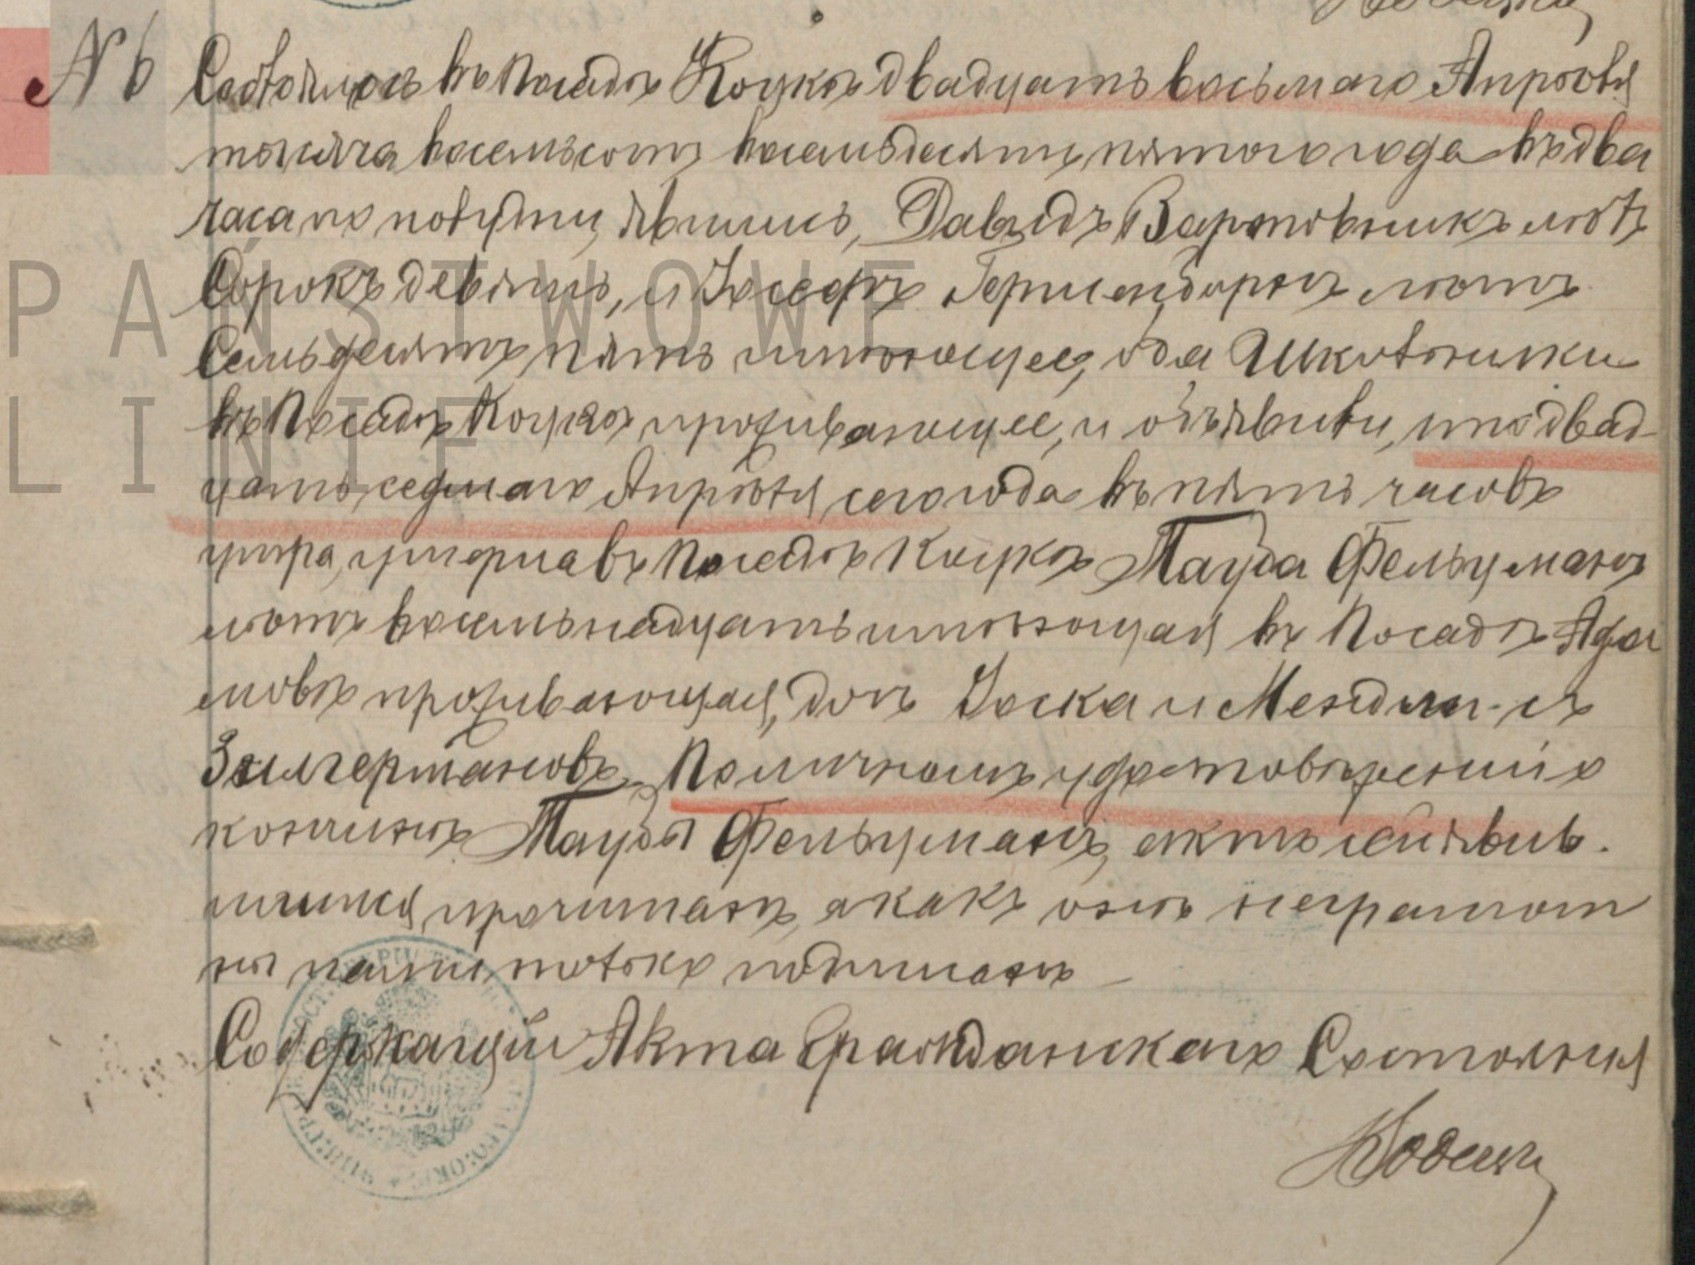 № 6
Состоялось въ Посадѣ Коцкѣ двадцать восьмаго Апрѣля
тысяча восемьсотъ восемьдесятъ пятого года въ два
часа по полудни, явились, Давидъ Вартовникъ лѣтъ
Сорокъ девять, и Іосефъ Герценбергъ лѣтъ
Семьдесятъ пять имѣющее, оба Школьники
въ Посадѣ Коцкѣ проживающее, и объявили, что двад-
цать седмаго Апрѣля сего года въ пять часовъ
утра, умерла въ Посадѣ Коцкѣ Тауба Фельцманъ
лѣтъ восемьнадцать имѣющая въ Посадѣ Ада
мовѣ проживающая, дочь Іоска и Мендли - съ
Зилгермановъ. По личномъ удостовѣреніи о
кончинѣ Таубы Фельцманъ, актъ сей явив-
шимся прочитанъ, а какъ они неграмот
ны нами только подписанъ
Содержащій Акта Гражданскаго Состоянія
PAŃSTWOWE
LINIE